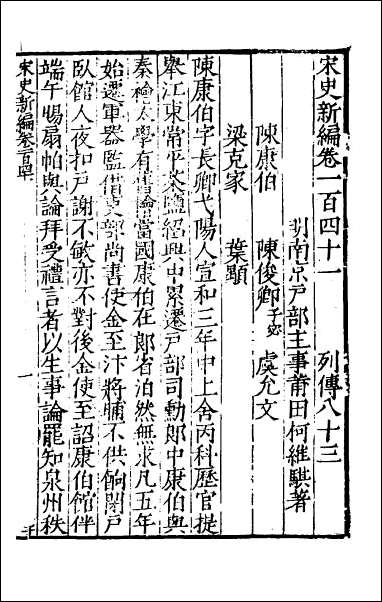 宋史新編卷一百四十一　列傳八十三
明南京戸部主事莆田柯維騏著
陳康伯　陳俊卿子宓　虞允文
梁克家　葉顒
陳康伯字長卿弋陽人宣和三年中上舍丙科歷官提
舉江東常平茶鹽紹興中累遷戸部司勳郎中康伯與
秦檜太學有舊檜當國康伯在郎省泊然無求凡五年
始遷軍器監借吏部尚書使金至汴將晡不供餉閉戸
臥館人夜扣戸謝不敏亦不對後金使至詔康伯館伴
端午賜扇帕與論拜受禮言者以生事論罷知泉州秩
宋史新編卷百四十一
一